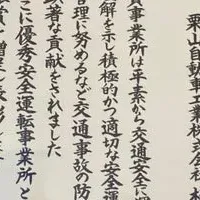 栗山自動車工業株式会社
貴事業所は平素から交通安全に
解を示し積極的かつ適切な安全運
管理に努めるなど交通事故の防
著な貢献をされました
こに優秀安全運転事業所と